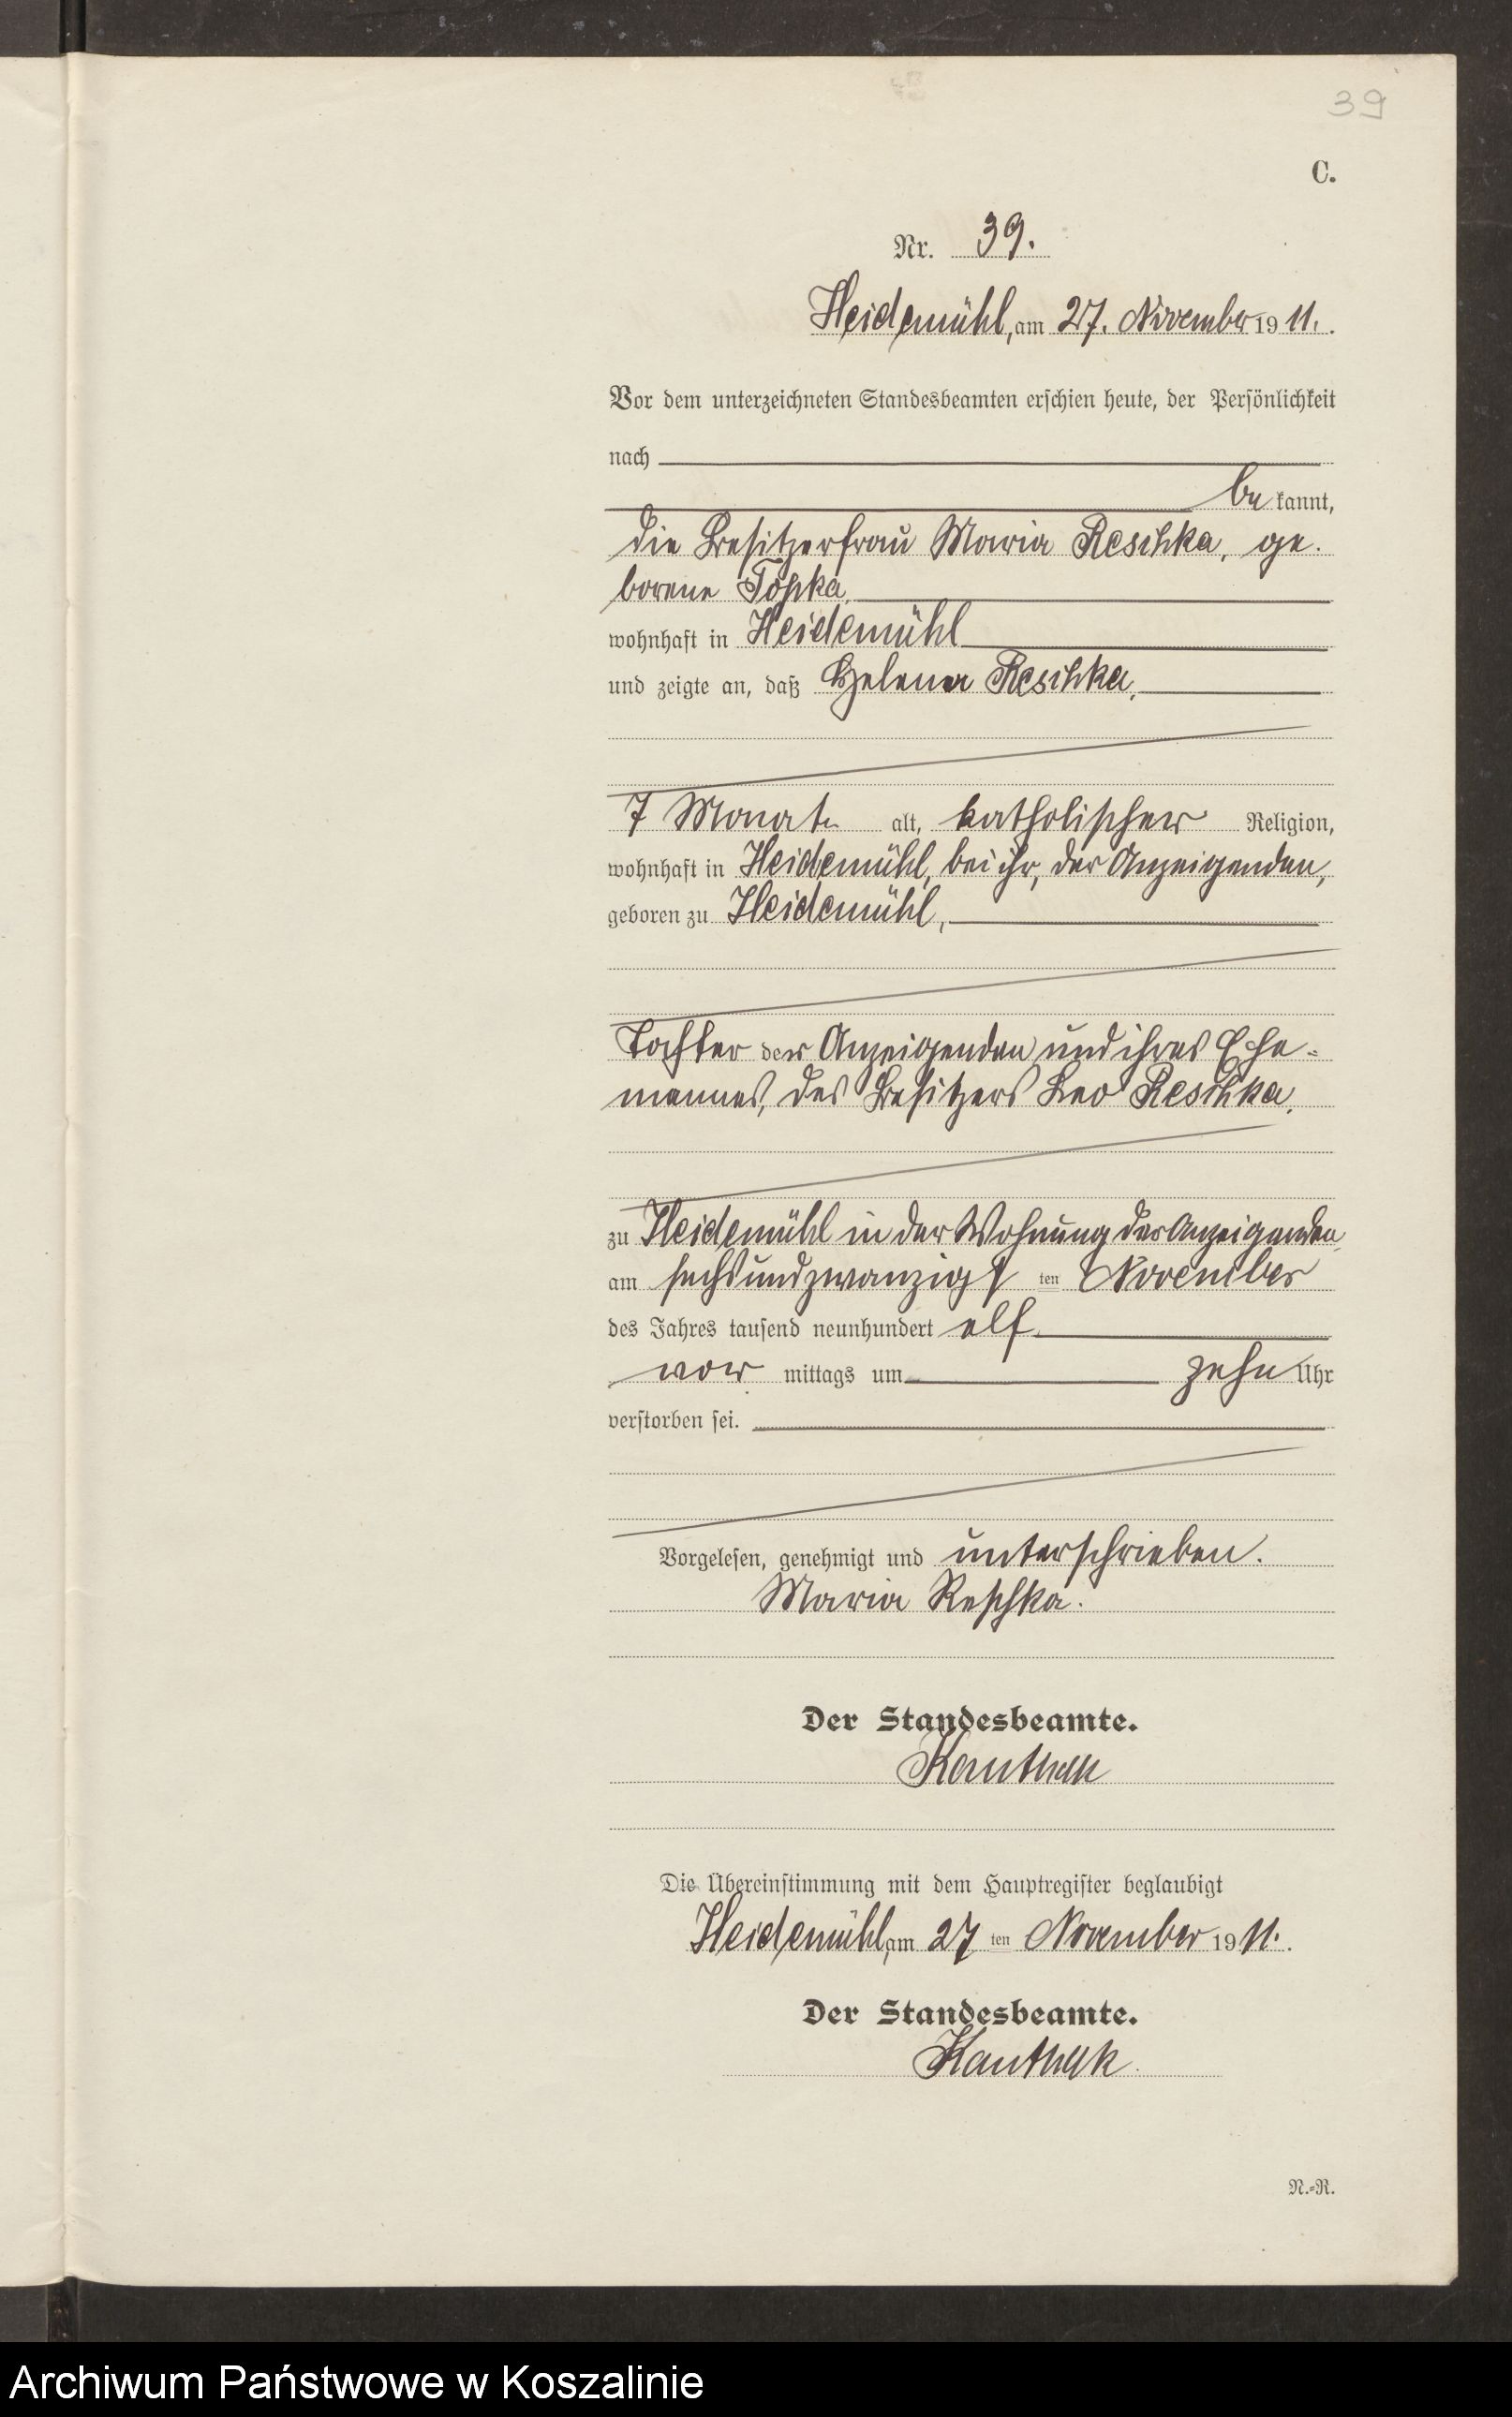 39
C.
Nr. 39.
Heidemühl, am 27. November 1911.
Vor dem unterzeichneten Standesbeamten erschien heute, der Persönlichkeit
nach
be kannt,
die Besitzerfrau Maria Reschka, ge-
borene Topka,
wohnhaft in Heidemühl
und zeigte an, daß Helena Reschka,
7 Monate alt, katholischer Religion,
wohnhaft in Heidemühl, bei ihr, der Anzeigenden,
geboren zu Heidemühl,
Tochter der Anzeigenden und ihres Ehe-
mannes, des Besitzers Leo Reschka,
zu Heidemühl in der Wohnung der Anzeigenden
am sechsundzwanzigsten November
des Jahres tausend neunhundert elf
vor mittags um zehn Uhr
verstorben sei.
Vorgelesen, genehmigt und unterschrieben.
Maria Reschka.
Der Standesbeamte.
Die Übereinstimmung mit dem Hauptregister beglaubigt
Heidemühl, am 27 ten November 1911.
Der Standesbeamte.
N.-R.
Archiwum Państwowe w Koszalinie